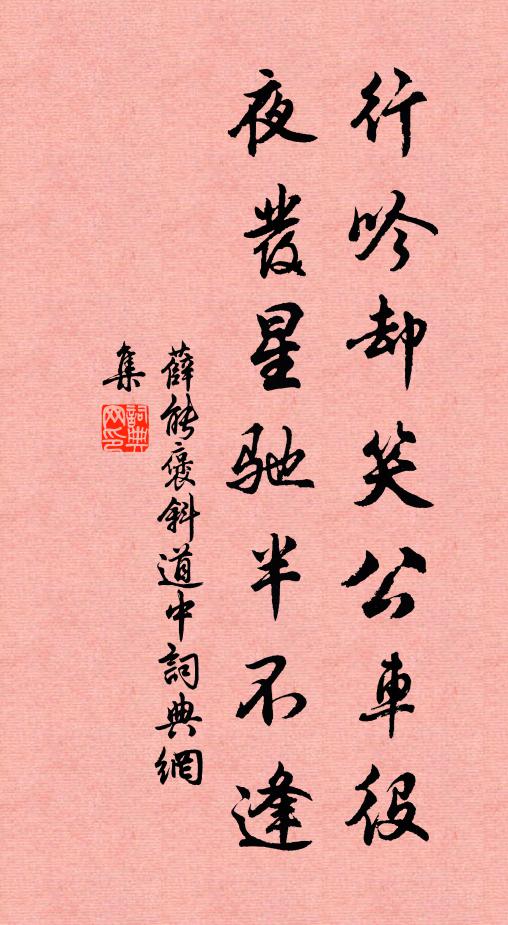 行吟却笑公車役
夜發星馳半不逢
薛能褒斜道中詞典網
集
詞典網印